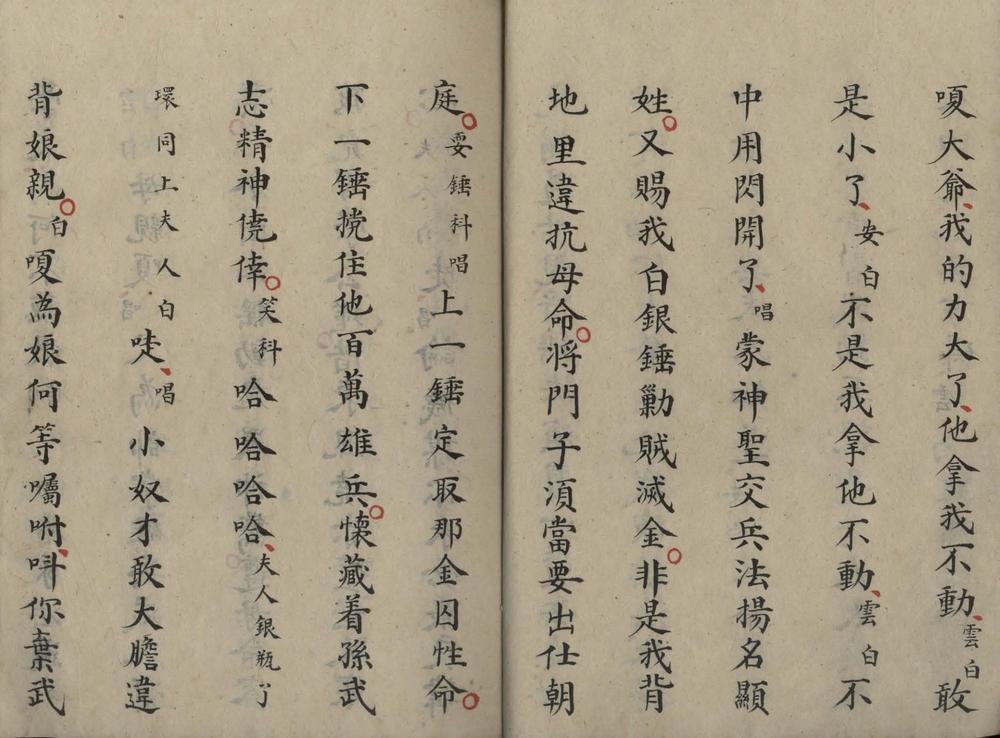 嗄大爺我的力大了他拿我不動雲白敢
是小了安白不是我拿他不動雲白不
中用閃開了唱蒙神聖交兵法揚名顯
姓又賜我白銀錘勦賊滅金非是我背
地里違抗母命將門子須當要出仕朝
庭耍錘科唱上一錘定取那金囚性命
下一錘搅住他百萬雄兵懐藏着孫武
志精神僥倖笑科哈哈哈哈夫人銀瓶丫
環同上夫人白唗唱小奴才敢大膽違
背娘親白嗄為娘何等囑咐呌你棄武